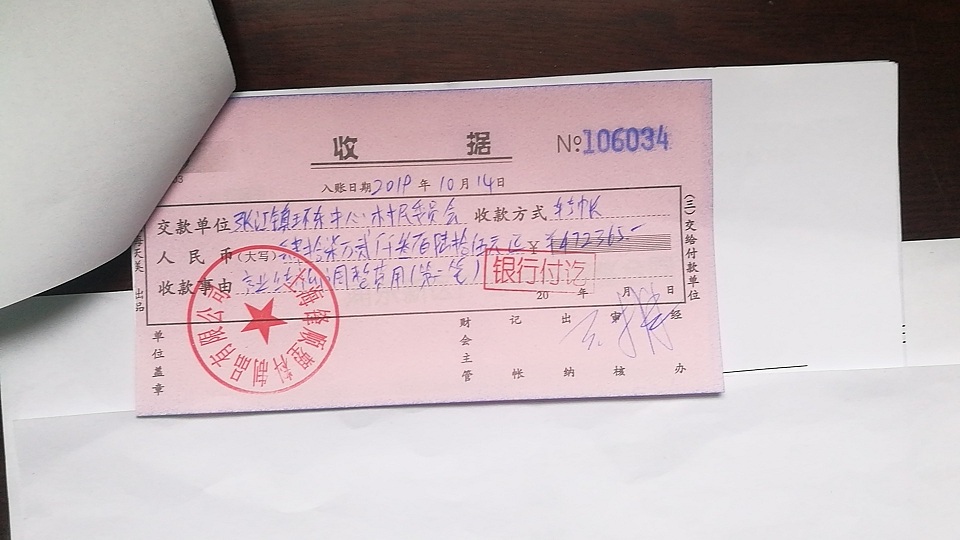 收 据 №106034
入账日期2019年10月14日
交款单位 张江镇环东中心村民委员会 收款方式 转帐
人民币(大写) 肆拾柒万贰仟叁百陆拾伍元正 ¥ ¥472365.-
收款事由 产业结构调整费用(第一笔)
银行付讫
20 年 月 日
(三)交给付款单位
单位盖章
财会主管
记帐
出纳
审核
经办
塑料制品有限公司
出品